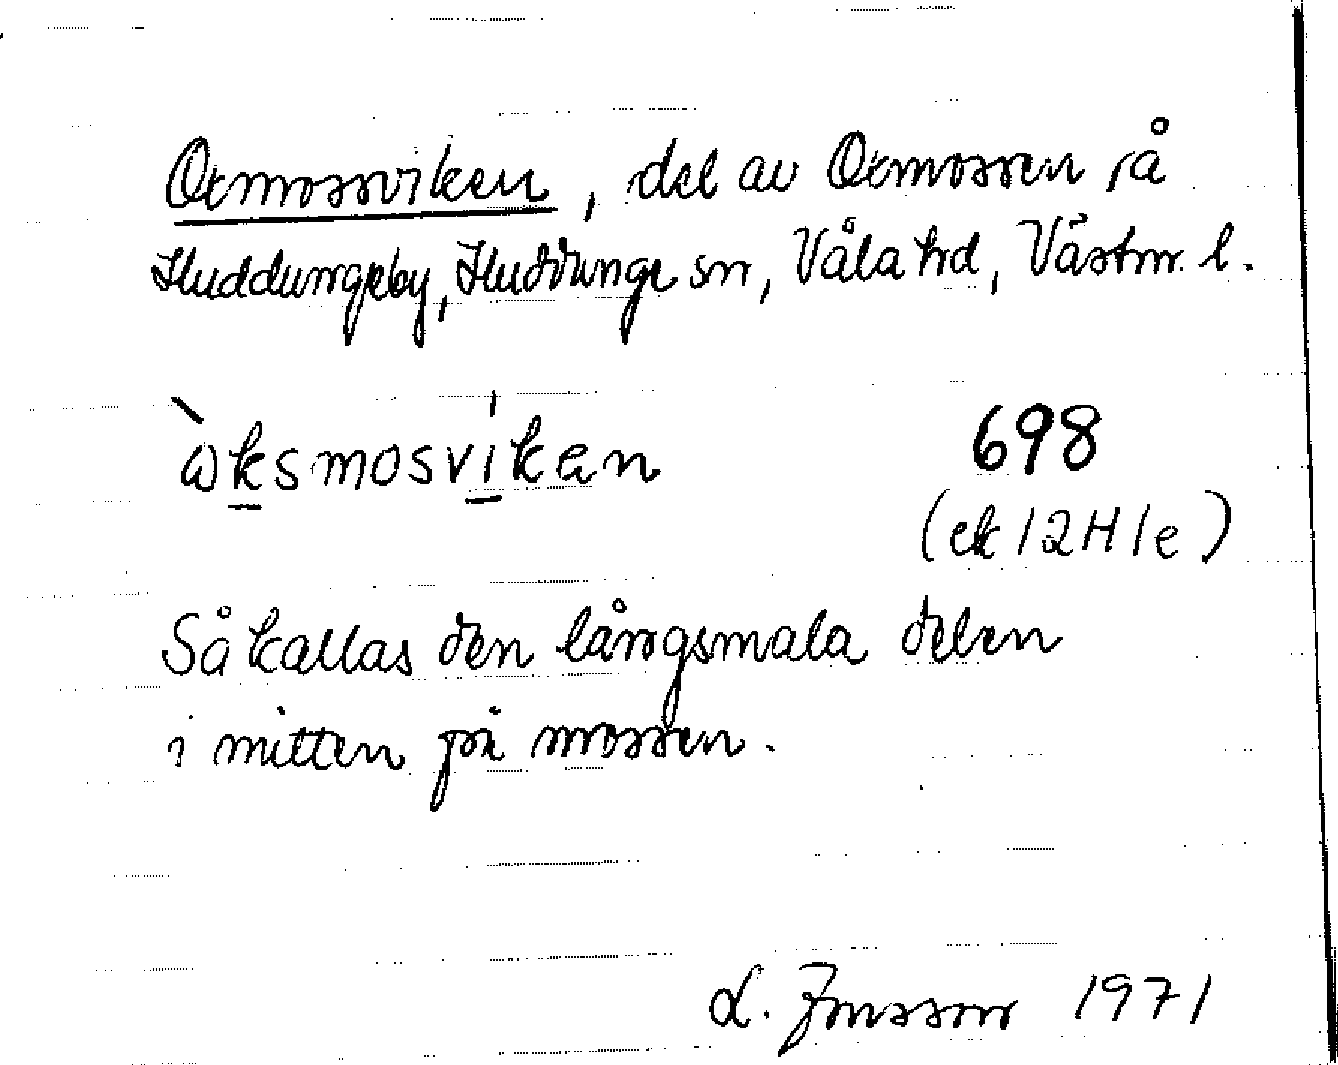 Oxmossviken, del av Oxmossen, å
Huddungeby, Huddunge sn, Våla hd, Västm. l.
ὼksmosvikan
698
(ek 12H1e)
Så kallas den långsmala delen
i mitten på mossen.
L. Jonsson 1971